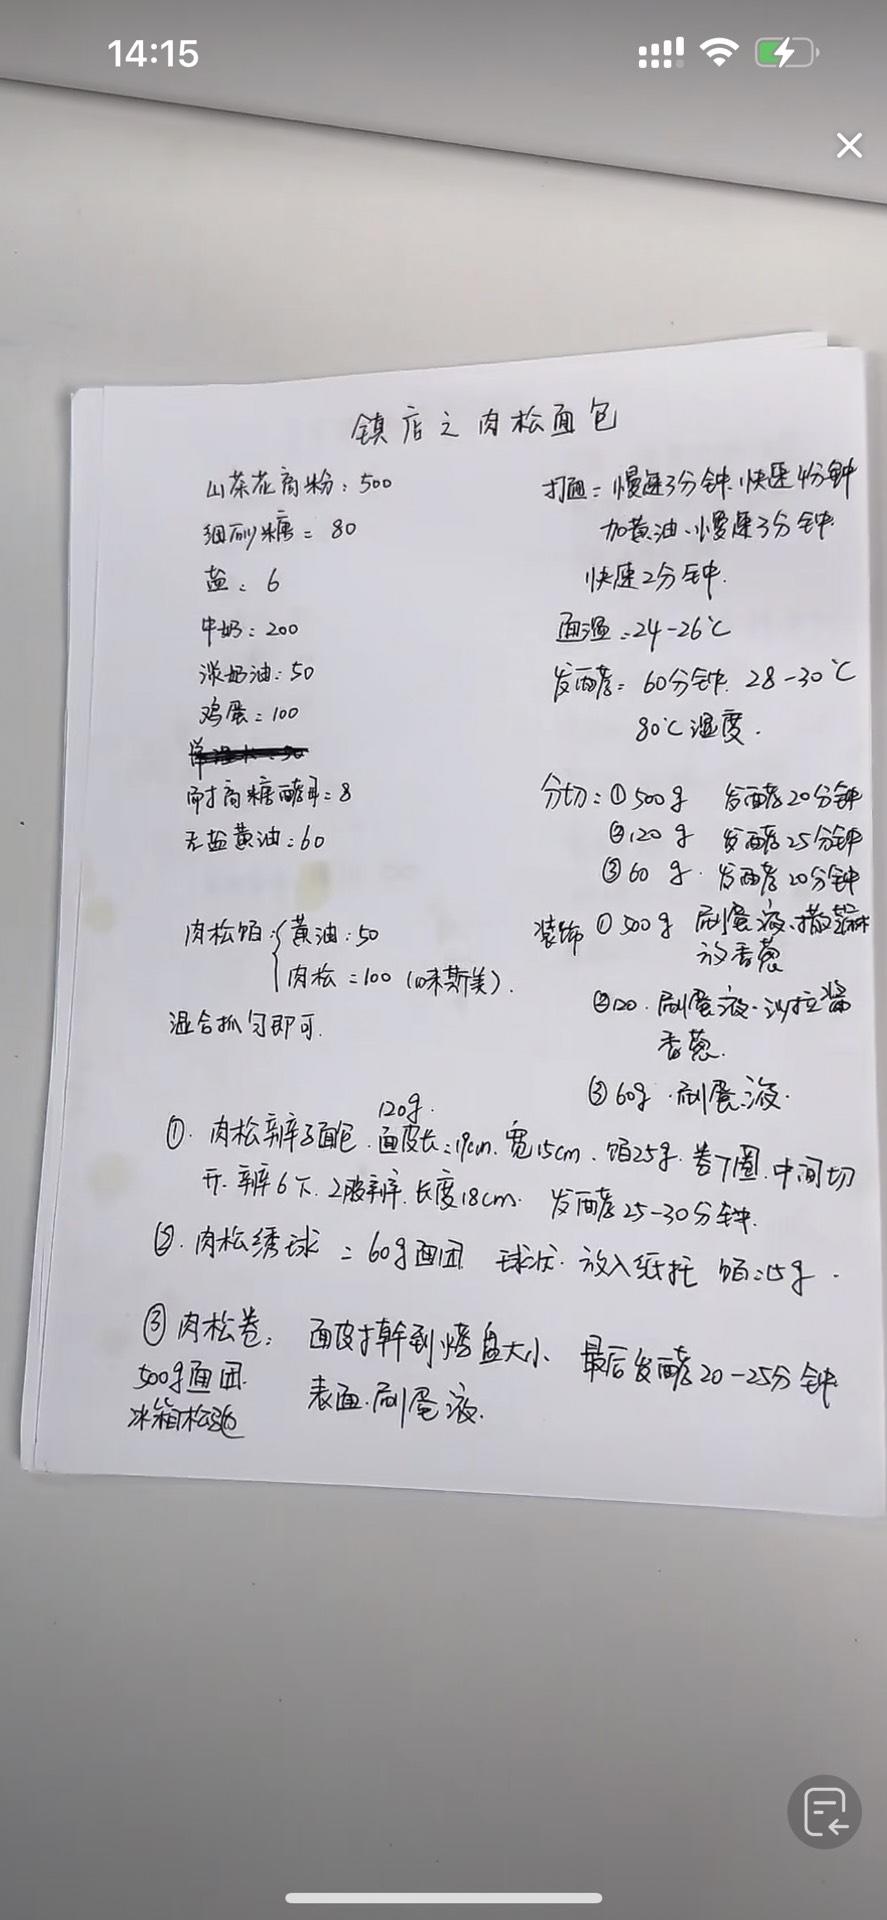 14:15
镇店之肉松面包
山茶花高粉：500
细砂糖：80
盐：6
牛奶：200
淡奶油：50
鸡蛋：100
耐高糖酵母：8
无盐黄油：60
肉松馅：黄油：50
肉松：100（味斯美）.
混合抓匀即可.
打面：慢速3分钟、快速4分钟
加黄油、慢速3分钟
快速2分钟.
面温：24-26℃
发酵：60分钟. 28-30℃
80℃湿度.
分切：①500g 发酵20分钟
②120g 发酵25分钟
③60g. 发酵20分钟
装饰 ①500g 刷蛋液、撒芝麻
放香葱
②120. 刷蛋液. 沙拉酱
香葱.
③60g. 刷蛋液.
120g.
①. 肉松辫子面包. 面皮长：19cm. 宽15cm、馅25g. 卷 圈. 中间切
开. 辫6下. 2股辫. 长度18cm. 发酵25-30分钟.
②. 肉松绣球：60g面团 球状. 放入纸托 馅：15g.
③肉松卷： 面皮擀到烤盘大小、 最后发酵20-25分钟
500g面团. 表面.刷蛋液.
冰箱松弛